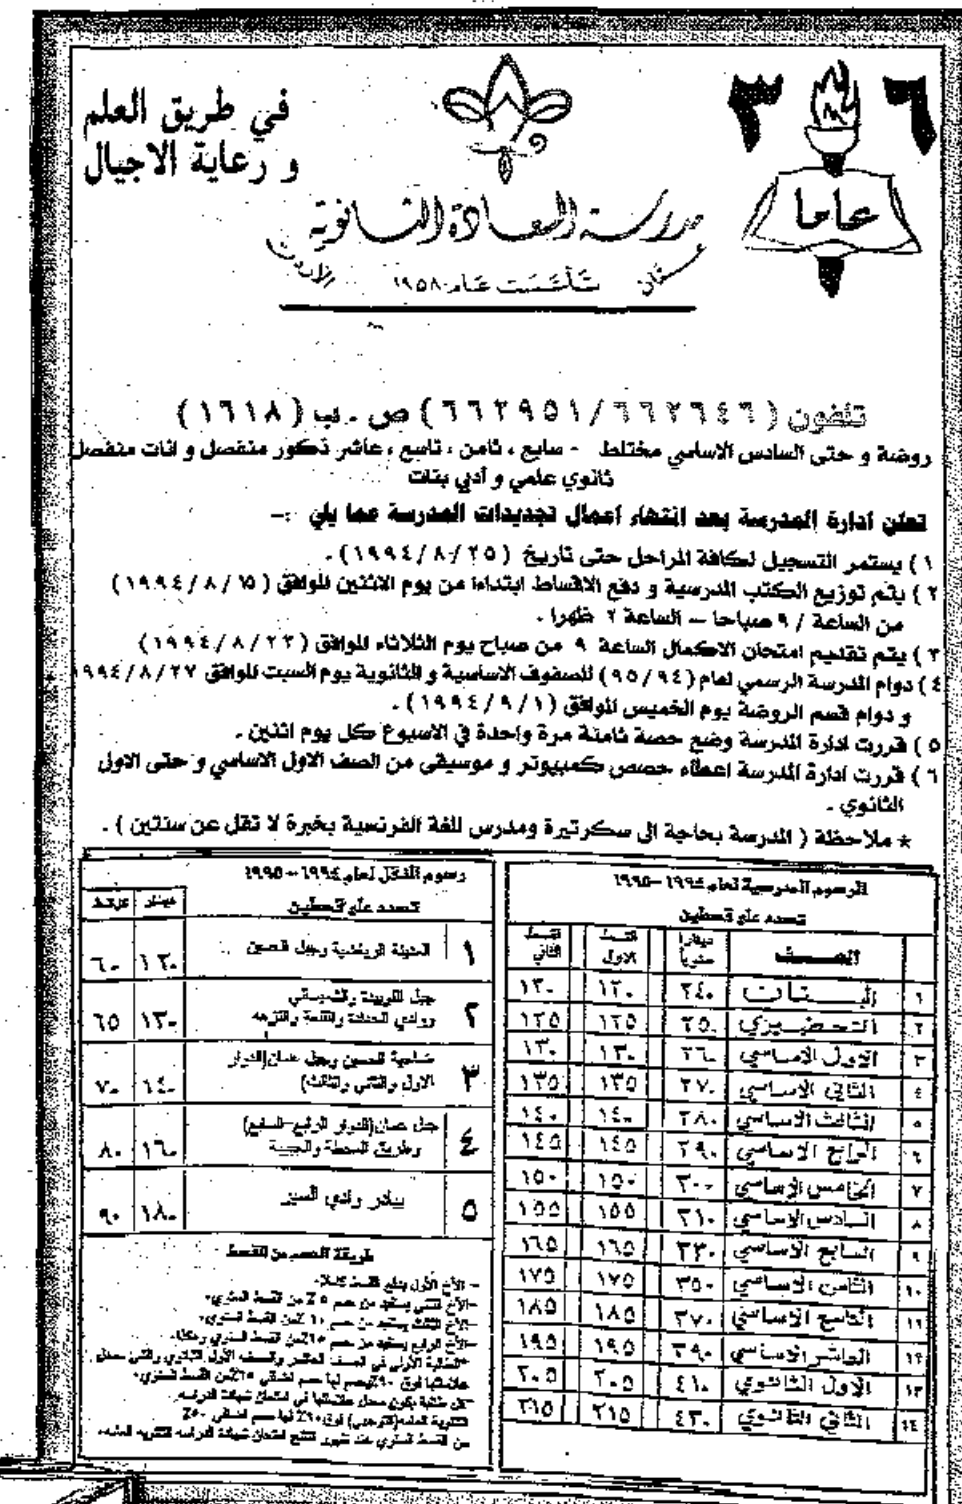 ٣٦
عاما
في طريق العلم
و رعاية الاجيال
مدرسة السعادة الثانوية
عمان تأسست عام ١٩٥٨ الاردن
تلفون ( ٦٦٢٩٥١/٦٦٢٦٤٦ ) ص . ب ( ١٦١٨ )
روضة و حتى السادس الاساسي مختلط - سابع ، ثامن ، تاسع ، عاشر ذكور منفصل و اناث منفصل
ثانوي علمي و أدبي بنات
تعلن ادارة المدرسة بعد انتهاء اعمال تجديدات المدرسة عما يلي :-
١ ) يستمر التسجيل لكافة المراحل حتى تاريخ ( ١٩٩٤/٨/٢٥ ) .
٢ ) يتم توزيع الكتب المدرسية و دفع الاقساط ابتداءا من يوم الاثنين الموافق ( ١٩٩٤/٨/١٥ )
من الساعة / ٩ صباحا – الساعة ٢ ظهرا .
٣ ) يتم تقديم امتحان الاكمال الساعة ٩ من صباح يوم الثلاثاء الموافق ( ١٩٩٤/٨/٢٣ )
٤ ) دوام المدرسة الرسمي لعام ( ٩٥/٩٤ ) للصفوف الاساسية و الثانوية يوم السبت الموافق ١٩٩٤/٨/٢٧
و دوام قسم الروضة يوم الخميس الموافق ( ١٩٩٤/٩/١ ) .
٥ ) قررت ادارة المدرسة وضع حصة ثامنة مرة واحدة في الاسبوع كل يوم اثنين .
٦ ) قررت ادارة المدرسة اعطاء حصص كمبيوتر و موسيقى من الصف الاول الاساسي و حتى الاول
الثانوي .
* ملاحظة ( المدرسة بحاجة الى سكرتيرة ومدرس للغة الفرنسية بخبرة لا تقل عن سنتين ) .
الرسوم المدرسية لعام ١٩٩٤-١٩٩٥
تسدد على قسطين
الصف دينارا سنويا القسط الاول القسط الثاني
١ البستان ٢٤٠ ١٢٠ ١٢٠
٢ التحضيري ٢٥٠ ١٢٥ ١٢٥
٣ الاول الاساسي ٢٦٠ ١٣٠ ١٣٠
٤ الثاني الاساسي ٢٧٠ ١٣٥ ١٣٥
٥ الثالث الاساسي ٢٨٠ ١٤٠ ١٤٠
٦ الرابع الاساسي ٢٩٠ ١٤٥ ١٤٥
٧ الخامس الاساسي ٣٠٠ ١٥٠ ١٥٠
٨ السادس الاساسي ٣١٠ ١٥٥ ١٥٥
٩ السابع الاساسي ٣٣٠ ١٦٥ ١٦٥
١٠ الثامن الاساسي ٣٥٠ ١٧٥ ١٧٥
١١ التاسع الاساسي ٣٧٠ ١٨٥ ١٨٥
١٢ العاشر الاساسي ٣٩٠ ١٩٥ ١٩٥
١٣ الاول الثانوي ٤١٠ ٢٠٥ ٢٠٥
١٤ الثاني الثانوي ٤٣٠ ٢١٥ ٢١٥
رسوم النقل لعام ١٩٩٤-١٩٩٥
تسدد على قسطين
دينار
١ المدينة الرياضية وجبل الحسين ١٢٠ ٦٠
٢ جبل اللويبدة والشميساني
ووادي الحدادة والقلعة والنزهه ١٣٠ ٦٥
٣ ضاحية الحسين وجبل عمان(الدوار
الاول والثاني والثالث) ١٤٠ ٧٠
٤ جبل عمان(الدوار الرابع-السابع)
وطريق المحطة ١٦٠ ٨٠
٥ بيادر وادي السير ١٨٠ ٩٠
طريقة الحسم من القسط
- الأخ الأول يدفع القسط كاملا.
- الأخ الثاني يستفيد من حسم ٥٪ من القسط السنوي.
- الأخ الثالث يستفيد من حسم ١٠٪ من القسط السنوي.
- الأخ الرابع يستفيد من حسم ١٥٪ من القسط السنوي وهكذا.